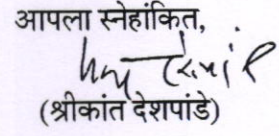 आपला स्नेहांकित,
(श्रीकांत देशपांडे)